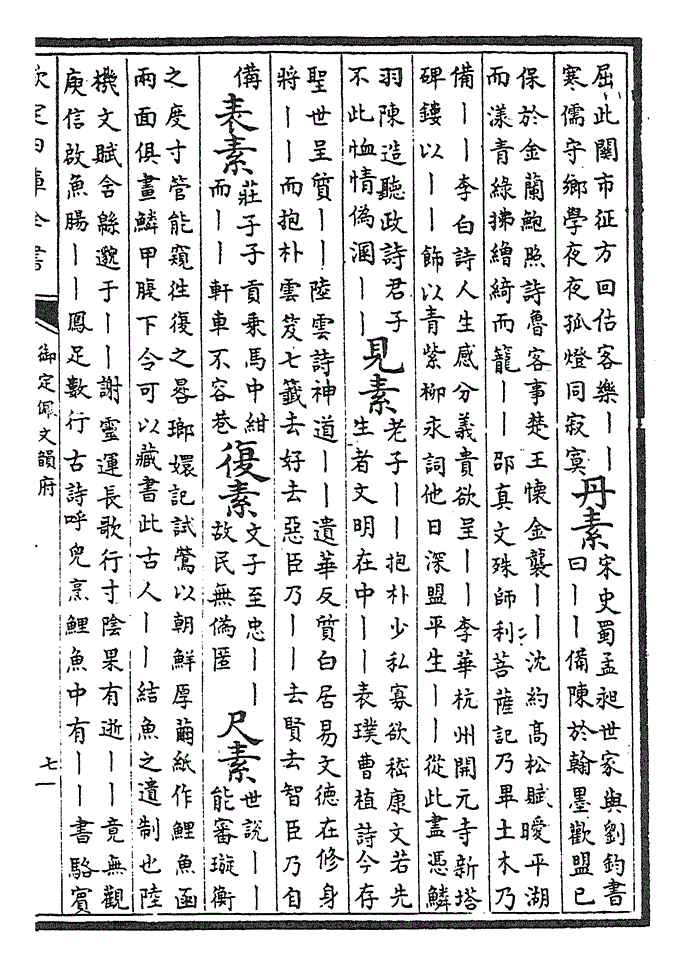 屈此關市征方回估客樂丨丨
寒儒守鄉學夜夜孤燈同寂寞
丹素
宋史蜀孟昶世家與劉鈞書
曰丨丨備陳於翰墨歡盟已
保於金蘭鮑照詩魯客事楚王懷金襲丨丨沈約高松賦曖平湖
而漾青綠拂繒綺而籠丨丨邵真文殊師利菩薩記乃畢土木乃
備丨丨李白詩人生感分義貴欲呈丨丨李華杭州開元寺新塔
碑鏤以丨丨飾以青紫柳永詞他日深盟平生丨丨從此盡憑鱗
羽陳造聽政詩君子
不此恤情偽溷丨丨
見素
老子丨丨抱朴少私寡欲嵇康文若先
生者文明在中丨丨表璞曹植詩今存
聖世呈質丨丨陸雲詩神道丨丨遺華反質白居易文德在修身
將丨丨而抱朴雲笈七籤去好去惡臣乃丨丨去賢去智臣乃自
備
表素
莊子子貢乗馬中紺
而丨丨軒車不容巷
復素
文子至忠丨丨
故民無偽匿
尺素
世説丨丨
能審璇衡
之度寸管能窺往復之晷瑯嬛記試鶯以朝鮮厚繭紙作鯉魚函
兩面俱畫鱗甲腹下令可以藏書此古人丨丨結魚之遺制也陸
機文賦含緜邈于丨丨謝靈運長歌行寸陰果有逝丨丨竟無觀
庾信啟魚腸丨丨鳳足數行古詩呼兒烹鯉魚中有丨丨書駱賓
欽定四庫全書
御定佩文韻府
七一